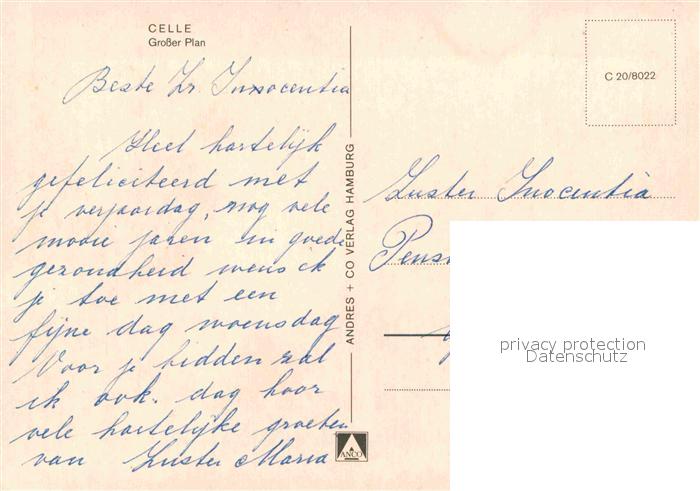 CELLE
Großer Plan
Beste Zr. Innocentia
Heel hartelijk
gefeliciteerd met
je verjaardag, nog vele
mooie jaren in goede
gezondheid wens ik
je toe met een
fijne dag woensdag
Voor je bidden zal
ik ook. dag hoor
vele hartelijke groeten
van Zuster Maria
ANDRES + CO VERLAG HAMBURG
ANCO
C 20/8022
Zuster Inocentia
privacy protection
Datenschutz